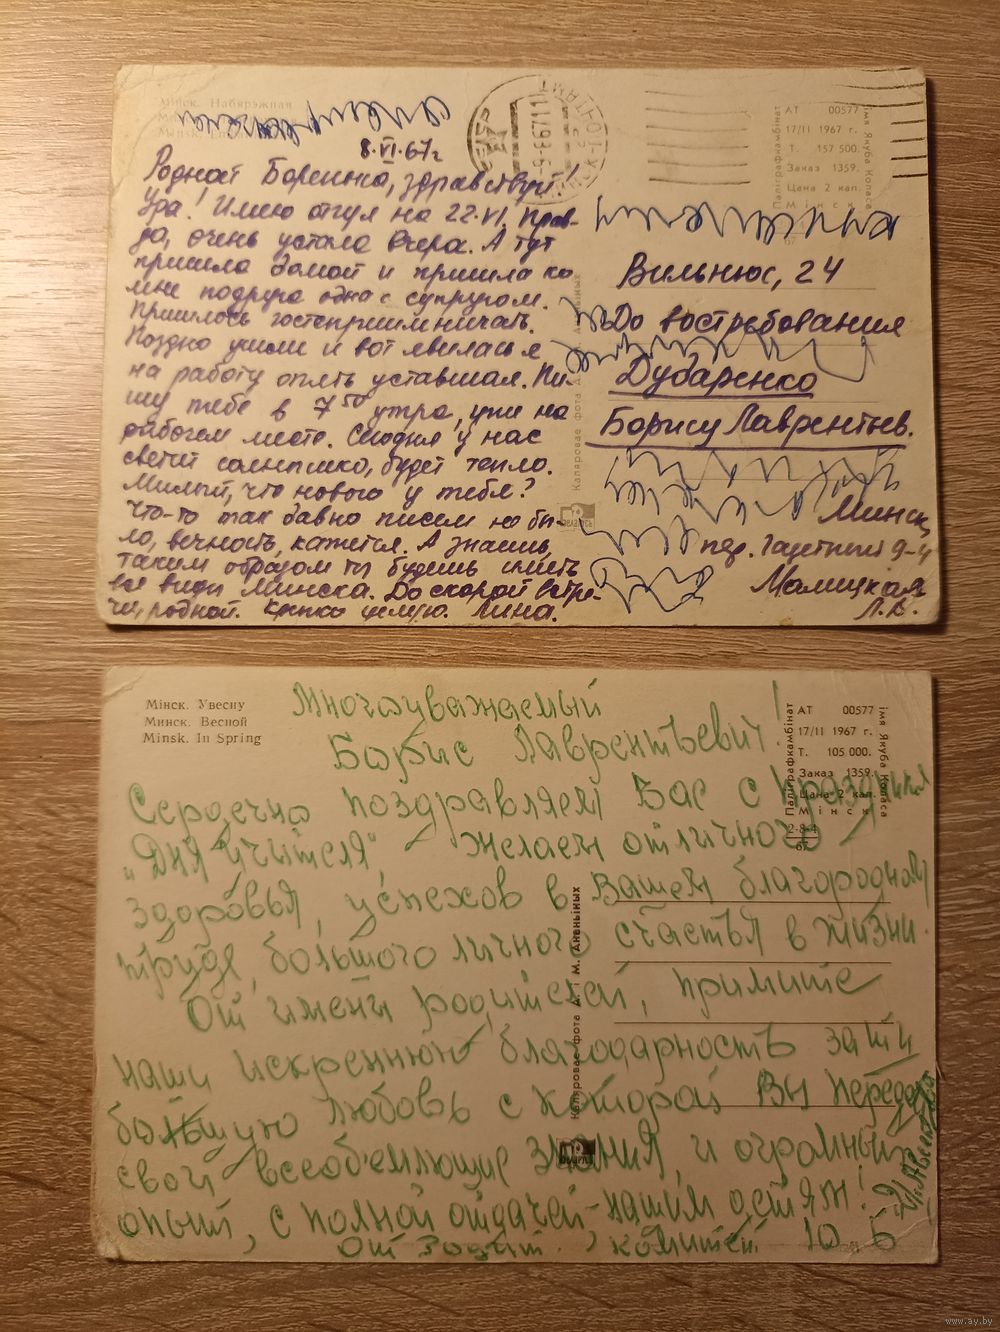 Мінск. Набярэжная
8.VI.67г
Родной Боренька, здравствуй!
Ура! Имею отгул на 22.VI. Прав-
да, очень устала вчера. А тут
пришла домой и пришла ко
мне подруга одна с супругом.
Пришлось гостеприимничать.
Поздно ушли и вот явилась я
на работу опять уставшая. Пи-
шу тебе в 7 50 утра, уже на
рабочем месте. Сегодня у нас
светит солнышко, будет тепло.
Милый, что нового у тебя?
Что-то так давно писем не бы-
ло, вечность, кажется. А знаешь,
таким образом ты будешь иметь
все виды Минска. До скорой встре-
чи, родной. Крепко целую. Лина.
Каляровае фота А.
АТ 00577
17/II 1967 г.
Т. 157 500.
Заказ 1359.
Цана 2 кап.
Мінск
67
Паліграфкамбінат
імя Якуба Коласа
Вильнюс, 24
До востребования
Дубаренко
Борису Лаврентьев.
Минск,
пер. Газетный 9-4
Малицкая
Л.В.
Мінск. Увесну
Минск. Весной
Minsk. In Spring
АТ 00577
17/II 1967 г.
Т. 105 000.
Заказ 1359.
Цана 2 кап.
Мінск
2-8-4
67
Паліграфкамбінат
імя Якуба Коласа
Каляровае фота А. і М. Ананьіных
Многоуважаемый
Борис Лаврентьевич!
Сердечно поздравляем Вас с праздником
„Дня учителя" желаем отличного
здоровья, успехов в Вашем благородном
труде, большого личного счастья в жизни.
От имени родителей, примите
нашу искреннюю благодарность за ту
большую любовь с которой Вы передаете
свои всеобъемлющие знания, и огромный
опыт, с полной отдачей - нашим детям!
От родит. комитета 10 Б
www.ay.by